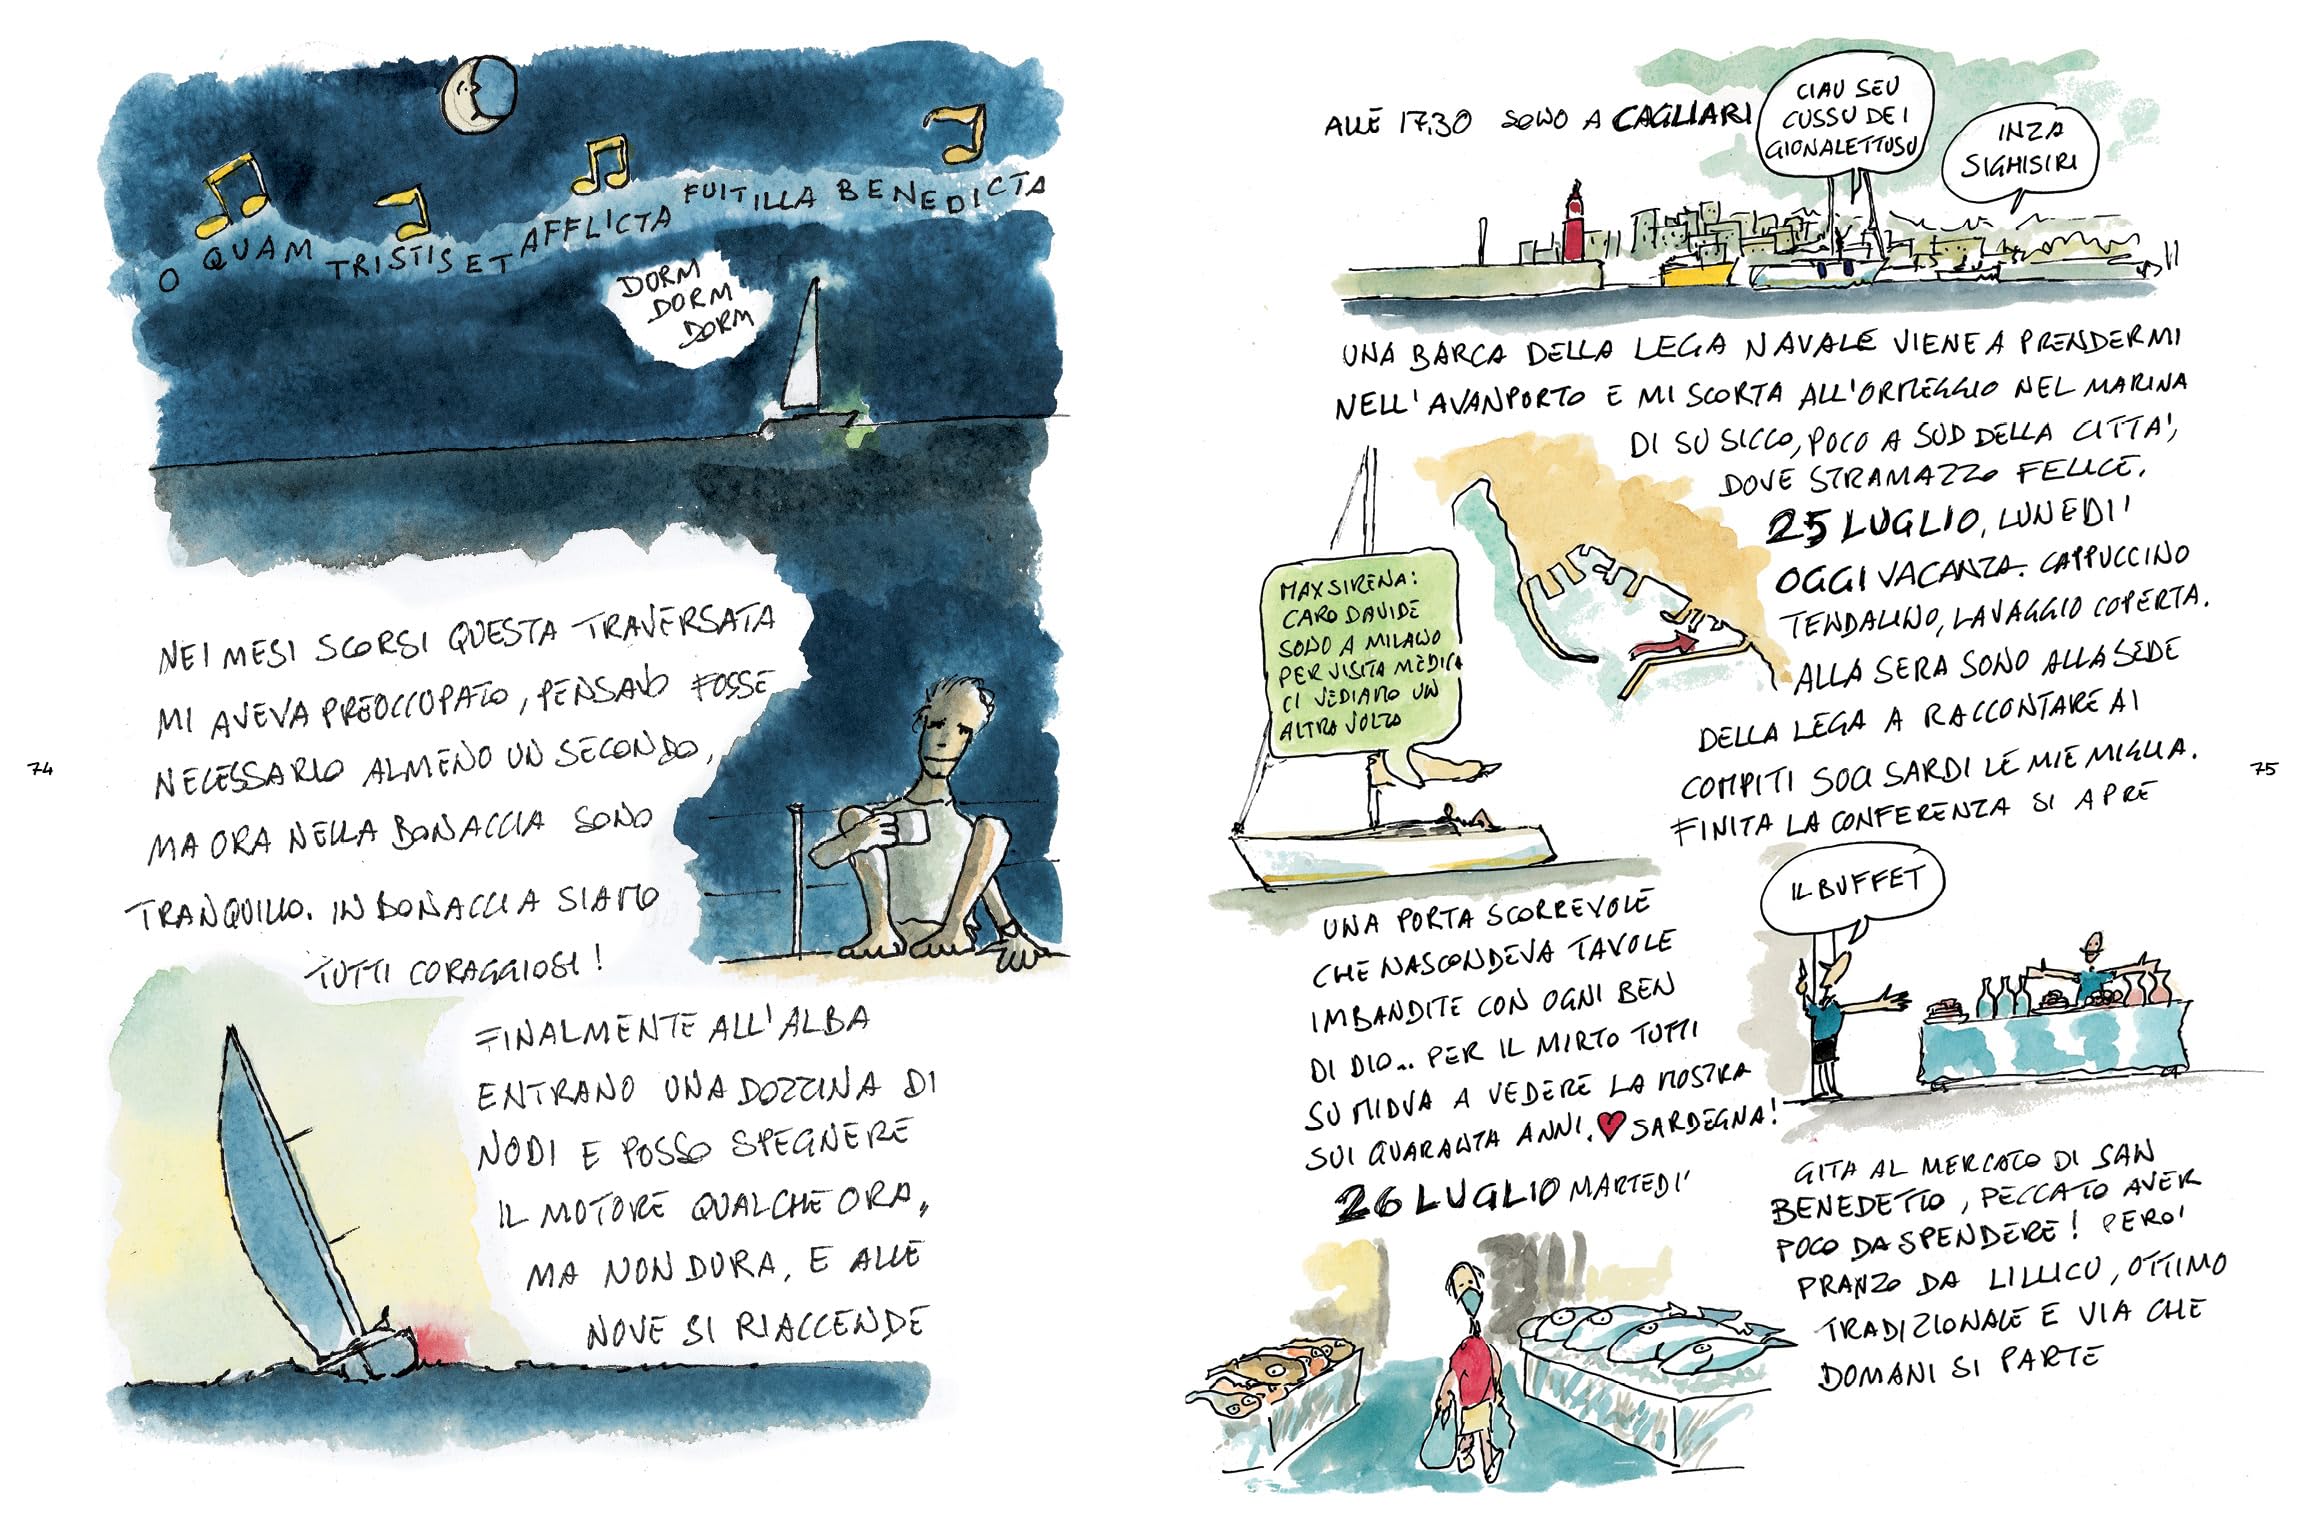 O QUAM TRISTIS ET AFFLICTA FUIT ILLA BENEDICTA
DORM
DORM
DORM
NEI MESI SCORSI QUESTA TRAVERSATA
MI AVEVA PREOCCUPATO, PENSAVO FOSSE
NECESSARIO ALMENO UN SECONDO,
MA ORA NELLA BONACCIA SONO
TRANQUILLO. IN BONACCIA SIAMO
TUTTI CORAGGIOSI!
FINALMENTE ALL'ALBA
ENTRANO UNA DOZZINA DI
NODI E POSSO SPEGNERE
IL MOTORE QUALCHE ORA,
MA NON DURA, E ALLE
NOVE SI RIACCENDE
74
ALLE 17,30 SONO A CAGLIARI
CIAU SEU
CUSSU DE I
GIONALETTUSU
INZA
SIGHISIRI
UNA BARCA DELLA LEGA NAVALE VIENE A PRENDERMI
NELL'AVANPORTO E MI SCORTA ALL'ORMEGGIO NEL MARINA
DI SU SICCO, POCO A SUD DELLA CITTA',
DOVE STRAMAZZO FELICE.
25 LUGLIO, LUNEDI'
OGGI VACANZA. CAPPUCCINO
TENDALINO, LAVAGGIO COPERTA.
ALLA SERA SONO ALLA SEDE
DELLA LEGA A RACCONTARE AI
COMPITI SOCI SARDI LE MIE MIGLIA.
FINITA LA CONFERENZA SI APRE
MAX SIRENA:
CARO DAVIDE
SONO A MILANO
PER VISITA MEDICA
CI VEDIAMO UN
ALTRA VOLTA
UNA PORTA SCORREVOLE
CHE NASCONDEVA TAVOLE
IMBANDITE CON OGNI BEN
DI DIO... PER IL MIRTO TUTTI
SU MIDVA A VEDERE LA MOSTRA
SUI QUARANTA ANNI. ❤ SARDEGNA!
IL BUFFET
26 LUGLIO MARTEDI'
GITA AL MERCATO DI SAN
BENEDETTO, PECCATO AVER
POCO DA SPENDERE! PERO'
PRANZO DA LILLICU, OTTIMO
TRADIZIONALE E VIA CHE
DOMANI SI PARTE
75